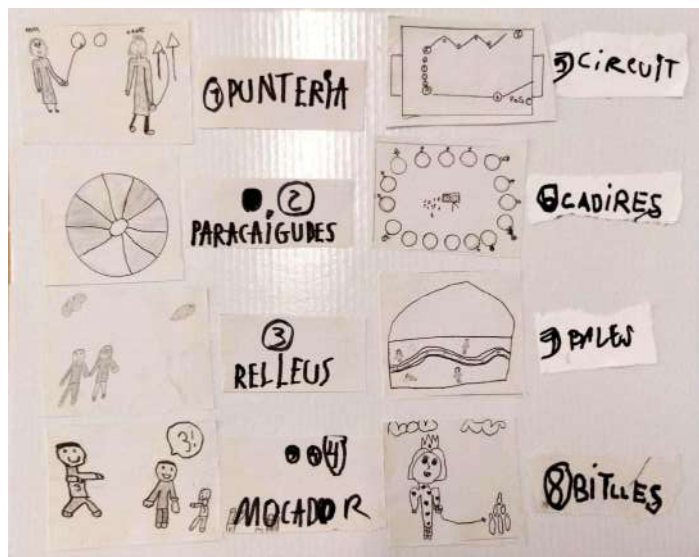 ① PUNTERIA
②
PARACAIGUDES
③
RELLEUS
3!
④
MOCADOR
5 CIRCUIT
6 CADIRES
7 BALES
⑧ BITLLES